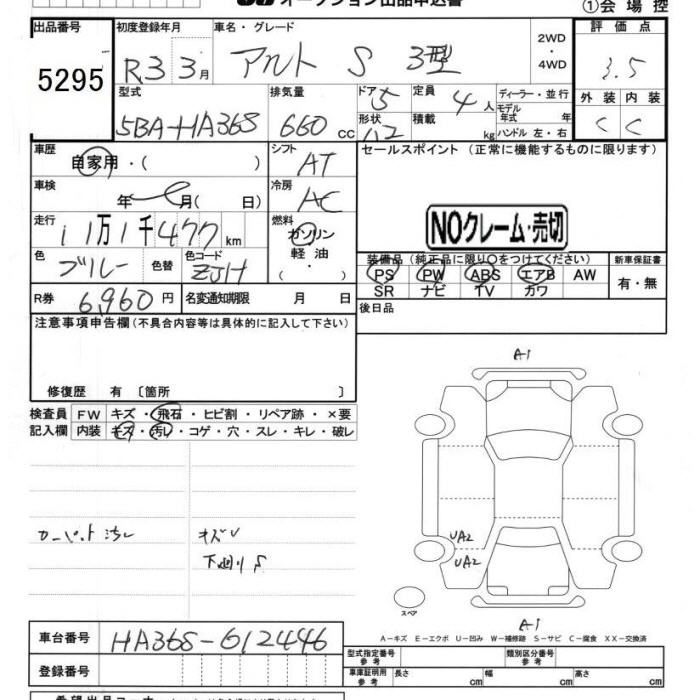 オークション出品申込書
①会場控
出品番号 初度登録年月 車名・グレード 評価点
5295 R3 3月 アルト S 3型 2WD・4WD 3.5
型式 排気量 ドア 5 定員 4人 ディーラー・並行 外装 内装
5BA-HA36S 660cc 形状 積載 kg モデル年式 年 ハンドル 左・右 C C
車歴 自家用・( ) シフト AT セールスポイント(正常に機能するものに限ります)
車検 年 月( 日) 冷房 AC
走行 11万1千477km 燃料 ガソリン・軽油・ NOクレーム・売切
色 ブルー 色替 色コード ZJH
装備品(純正品に限り○をつけてください) 新車保証書
PS PW ABS エアB AW 有・無
SR ナビ TV カワ
R券 6,960円 名変通知期限 月 日 後日品
注意事項申告欄(不具合内容等は具体的に記入して下さい)
修復歴 有〔箇所 〕
検査員 FW キズ・飛石・ヒビ割・リペア跡・×要
記入欄 内装 キズ・汚レ・コゲ・穴・スレ・キレ・破レ
A1
UA2
UA2
カーペット汚レ キズU
下廻りS
スペア
A1
A-キズ E-エクボ U-凹み W-補修跡 S-サビ C-腐食 XX-交換済
車台番号 HA36S-612446
型式指定番号 参考 類別区分番号 参考
登録番号 車庫証明用 参考 長さ cm 幅 cm 高さ cm
希望出品コーナー